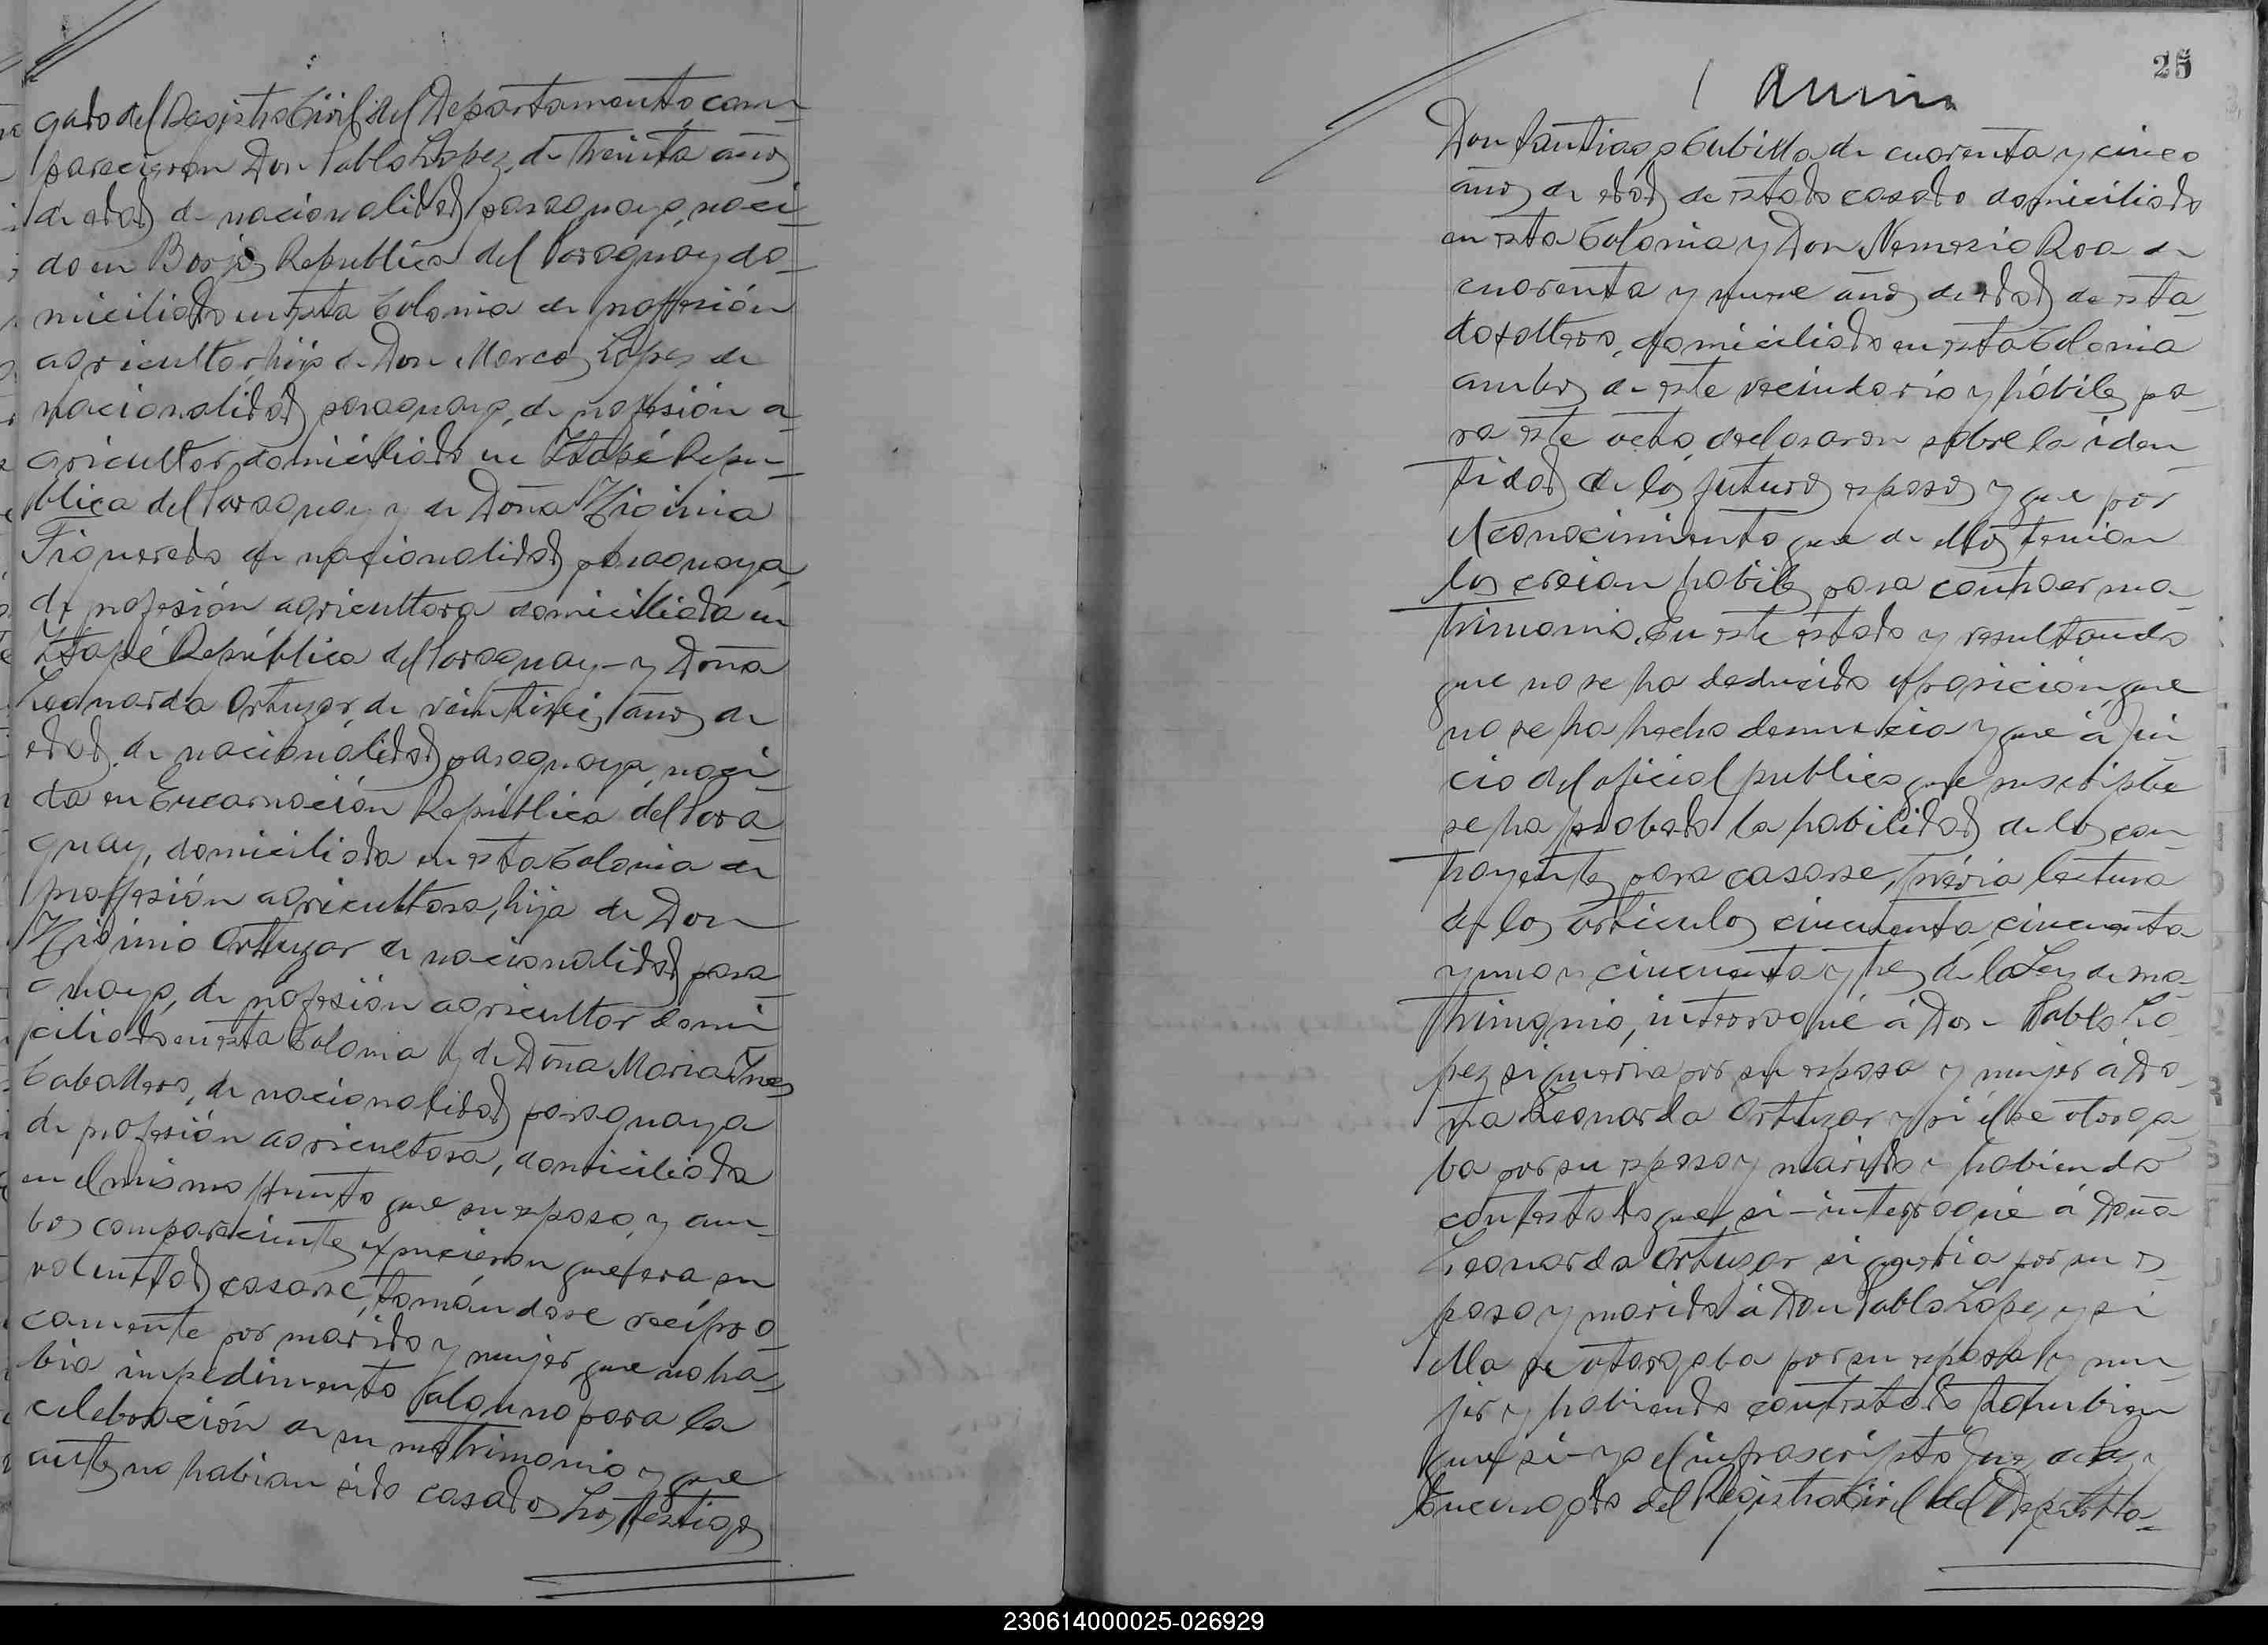 gado del Registro Civil del Departamento, com-
parecieron Don Pablo Lopez, de treinta años
de edad de nacionalidad paraguaya, naci-
do en Borja Republica del Paraguay do-
miciliado en esta Colonia de proffesión
agricultor, hijo de Don Marcos Lopez de
nacionalidad paraguaya, de profesión a-
gricultor, domiciliado en Itapé Repu-
blica del Paraguay y de Doña Higinia
Figueredo de nacionalidad paraguaya,
de profesión agricultora domiciliada en
Itapé República del Paraguay - y Doña
Leonarda Ortuzar, de veintiseis años de
edad, de nacionalidad paraguaya, naci-
da en Encarnación República del Para-
guay, domiciliada en esta Colonia de
proffesión agricultora, hija de Don
Higinio Ortuzar de nacionalidad para-
guayo, de profesión agricultor domi-
ciliado en esta Colonia y de Doña Maria Ines
Caballero, de nacionalidad paraguaya
de profesión agricultora, domiciliada
en el mismo punto que su esposo, y am-
bos comparecientes expucieron que era su
voluntad casarse, tomándose recipro-
camente por marido y mujer, que no ha-
bia impedimento alguno para la
celebración de su matrimonio y que
antes no habian sido casados. Los testigos
25
Don Santiago Cubilla de cuarenta y cinco
años de edad de estado casado domiciliado
en esta Colonia y Don Nemesio Roa de
cuarenta y nueve años de edad de esta-
do soltero, domiciliado en esta Colonia
ambos de este vecindario y hábiles pa-
ra este acto, declararon sobre la iden-
tidad de los futuros esposos y que por
el conocimiento que de ellos tenian
los creian habiles para contraer ma-
trimonio. En este estado y resultando
que no se ha deducido oposicion, que
no se ha hecho denuncia y que á jui-
cio del oficial publico que suscripbe
se ha probado la habilidad de los con-
trayentes para casarse, prévia lectura
de los articulos cincuenta, cincuenta
y uno y cincuenta y tres de la Ley de ma-
trimonio, interrogué á Don Pablo Lo-
pez si queria por su esposa y mujer á Do-
ña Leonarda Ortuzar y si él se otorga-
ba por su esposo y marido y habiendo
contestado que si - interrogué á Doña
Leonarda Ortuzar si queria por su es-
poso y marido á Don Pablo Lopez y si
ella se otorgaba por su esposa y mu-
jer y habiendo contestado tambien
que si - yo el infrascripto Juez de Paz y
Encargado del Registro Civil del Departa-
230614000025-026929